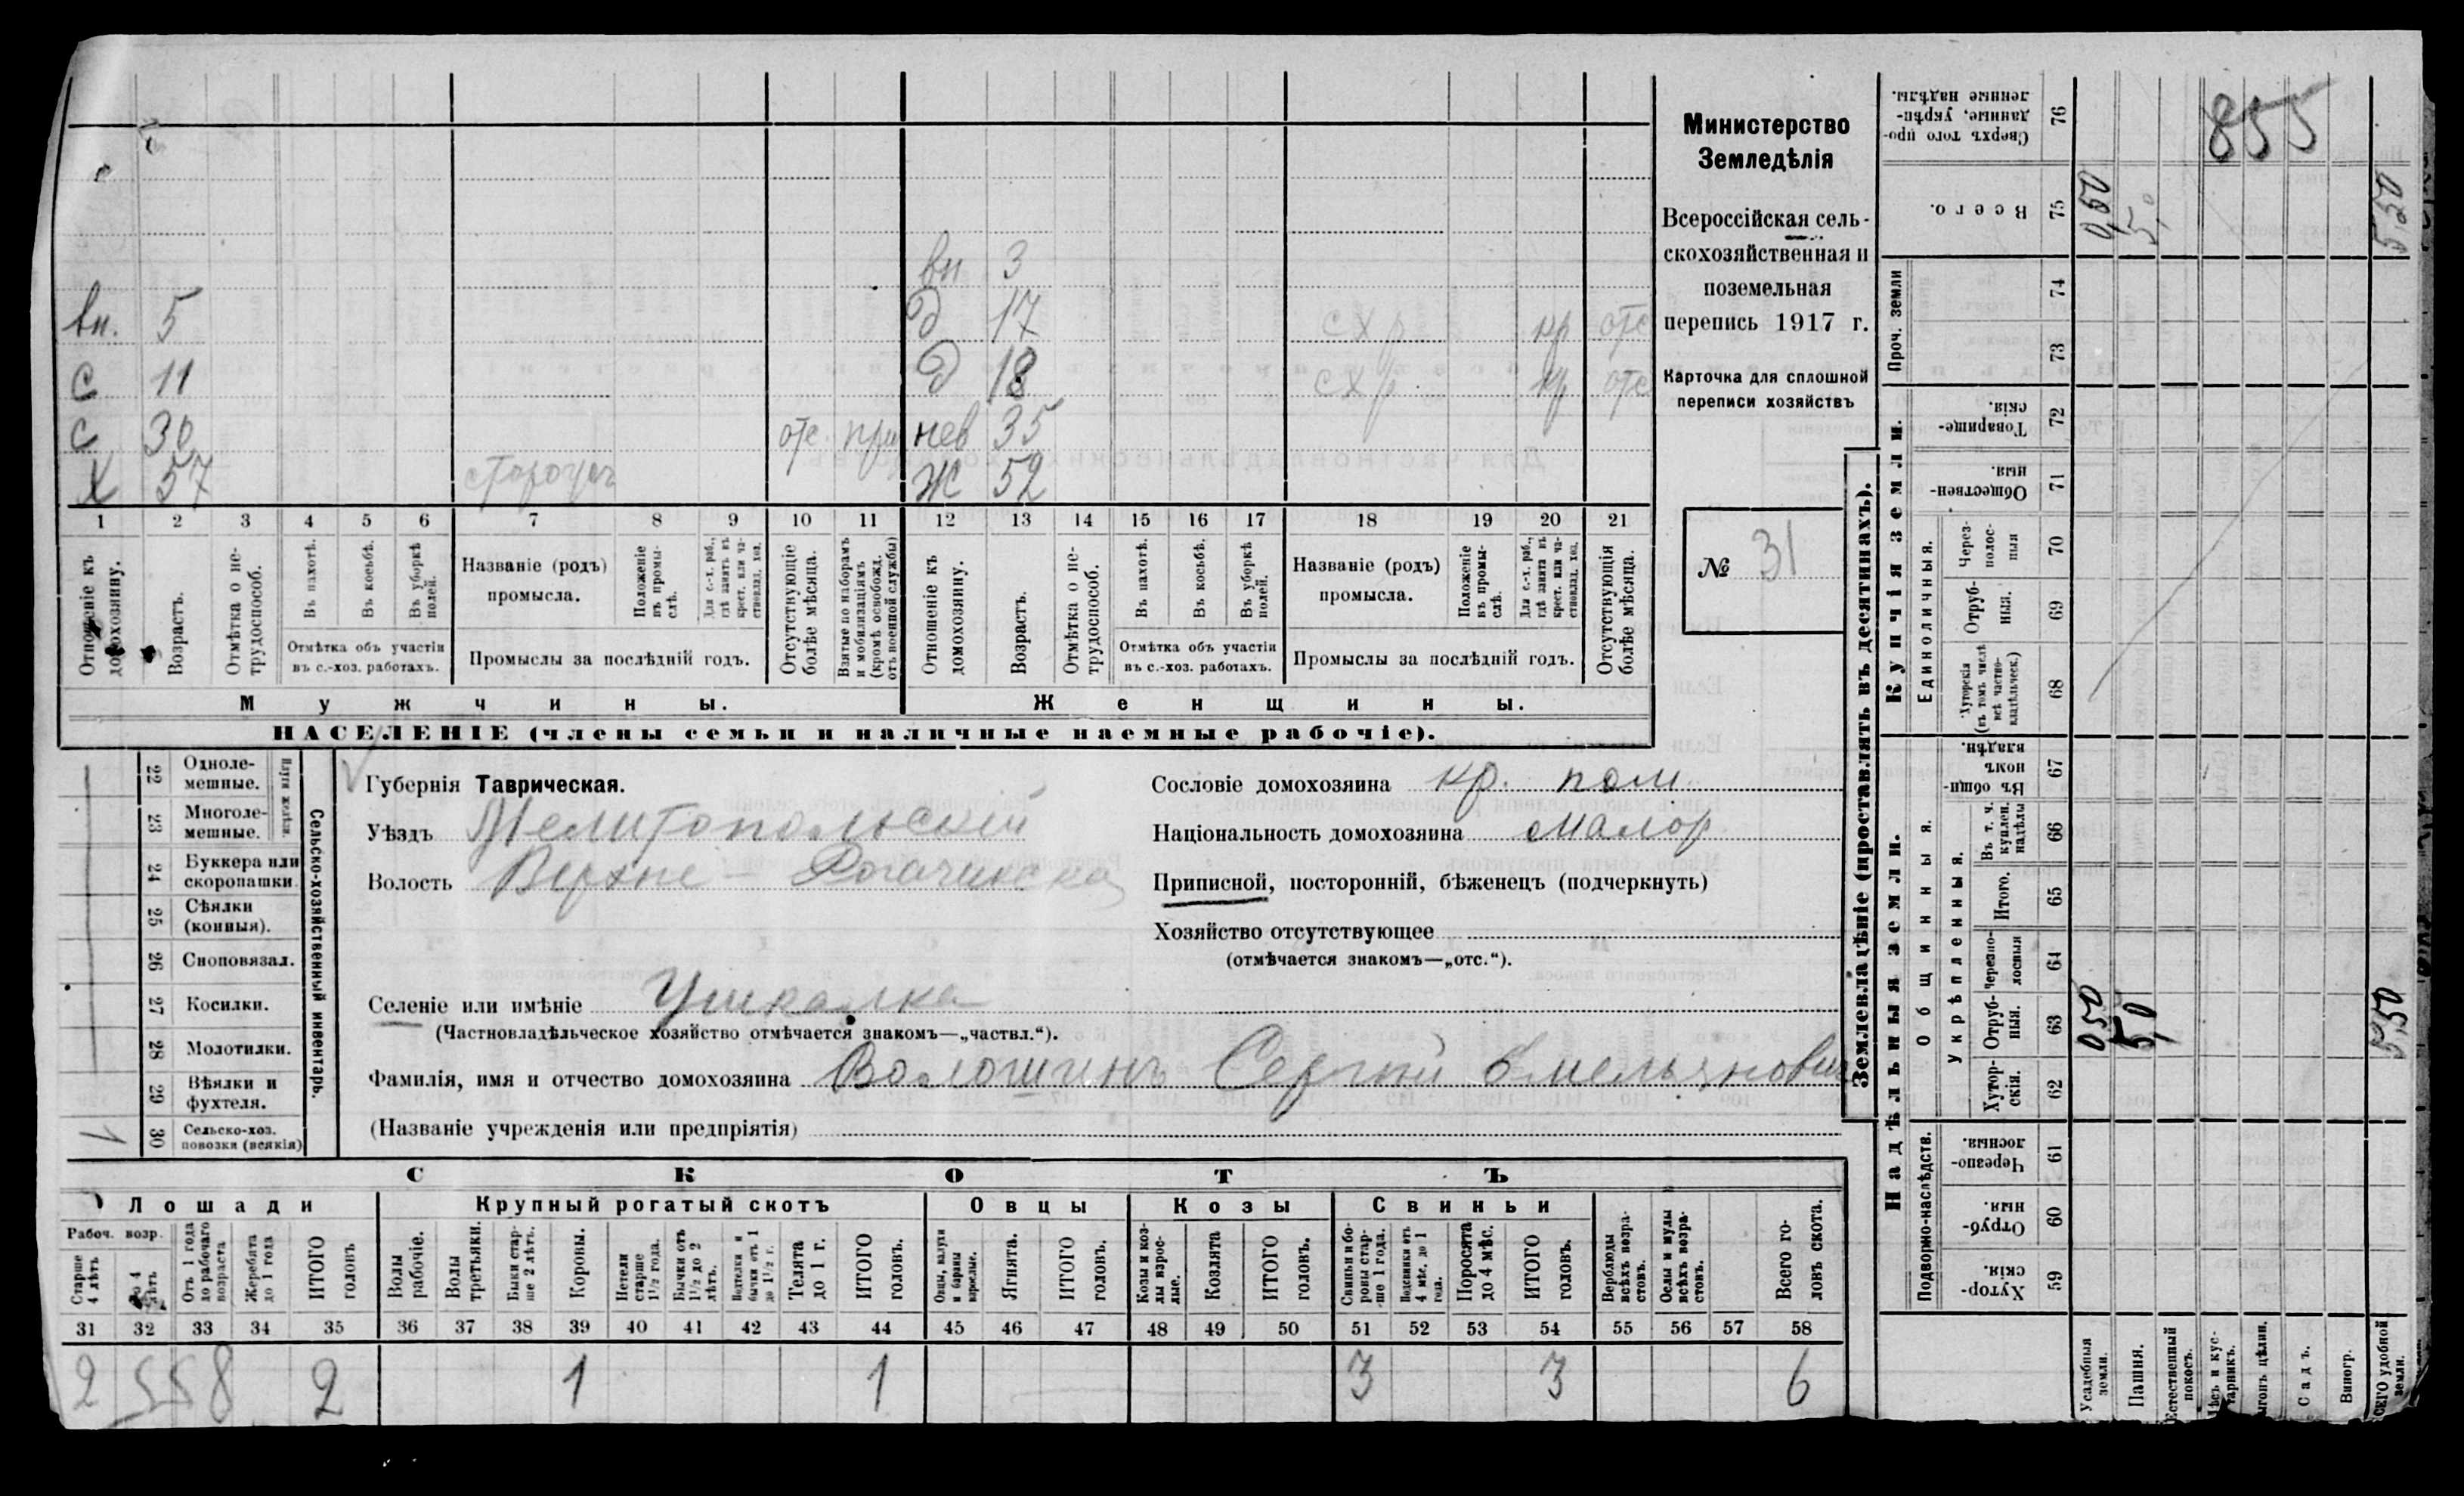 Министерство
Земледѣлія
Всероссійская сель-
скохозяйственная и
поземельная
перепись 1917 г.
Карточка для сплошной
переписи хозяйствъ
№ 31
вн 3
вн. 5 д 17 схр кр отс
с 11 д 18 схр кр отс
с 30 отс. при нев 35
х 57 ж 52
1 2 3 4 5 6 7 8 9 10 11 12 13 14 15 16 17 18 19 20 21
Отношеніе къ домохозяину.
Возрастъ.
Отмѣтка о не-трудоспособ.
Въ пахотѣ.
Въ косьбѣ.
Въ уборкѣ полей.
Отмѣтка объ участіи
въ с.-хоз. работахъ.
Названіе (родъ)
промысла.
Положеніе въ промы-слѣ.
Для с.-х. раб., гдѣ занятъ въ крест. или ча-стновлад. хоз.
Промыслы за послѣдній годъ.
Отсутствующіе болѣе мѣсяца.
Взятые по наборамъ и мобилизаціямъ (кромѣ освобожд. отъ военной службы)
Отношеніе къ домохозяину.
Возрастъ.
Отмѣтка о не-трудоспособ.
Въ пахотѣ.
Въ косьбѣ.
Въ уборкѣ полей.
Отмѣтка объ участіи
въ с.-хоз. работахъ.
Названіе (родъ)
промысла.
Положеніе въ промы-слѣ.
Для с.-х. раб., гдѣ занята въ крест. или ча-стновлад. хоз.
Промыслы за послѣдній годъ.
Отсутствующія болѣе мѣсяца.
Мужчины.
Женщины.
НАСЕЛЕНІЕ (члены семьи и наличные наемные рабочіе).
22 Одноле-мешные.
23 Многоле-мешные.
24 Буккера или скоропашки.
25 Сѣялки (конныя).
26 Сноповязал.
27 Косилки.
28 Молотилки.
29 Вѣялки и фухтеля.
1 30 Сельско-хоз. повозки (всякія)
Сельско-хозяйственный инвентарь.
Губернія Таврическая.
Уѣздъ Мелитопольскій
Волость Верхне-Рогачикская
Селеніе или имѣніе Ушкалка
(Частновладѣльческое хозяйство отмѣчается знакомъ—„частвл.“).
Фамилія, имя и отчество домохозяина Волошинъ Сергѣй Емельянович
(Названіе учрежденія или предпріятія)
Сословіе домохозяина кр. пом.
Національность домохозяина малор
Приписной, посторонній, бѣженецъ (подчеркнуть)
Хозяйство отсутствующее
(отмѣчается знакомъ—„отс.“).
СКОТЪ
Лошади
Рабоч. возр.
Старше 4 лѣтъ
До 4 лѣтъ
Отъ 1 года до рабочаго возраста
Жеребята до 1 года
ИТОГО головъ
Крупный рогатый скотъ
Волы рабочіе.
Волы третьяки.
Быки стар-ше 2 лѣтъ.
Коровы.
Нетели старше 1½ года.
Бычки отъ 1½ до 2 лѣтъ.
бычки отъ 1 до 1½ г.
Телята до 1 г.
ИТОГО головъ.
Овцы
Овцы, валухи и бараны взрослые.
Ягнята.
ИТОГО головъ.
Козы
Козы и коз-лы взрос-лые.
Козлята
ИТОГО головъ.
Свиньи
Свиньи и бо-ровы стар-ше 1 года.
Подсвинки отъ 4 мѣс. до 1 года.
Поросята до 4 мѣс.
ИТОГО головъ.
Верблюды всѣхъ возра-стовъ.
Ослы и мулы всѣхъ возра-стовъ.
Всего го-ловъ скота.
31 32 33 34 35 36 37 38 39 40 41 42 43 44 45 46 47 48 49 50 51 52 53 54 55 56 57 58
2 558 2 1 1 3 3 6
Землевладѣніе (проставлять въ десятинахъ).
Надѣльныя земли.
Подворно-наслѣдств.
Хутор-скія. 59
Отруб-ныя. 60
Черезпо-лосныя. 61
Общинныя.
Укрѣпленныя.
Хутор-скія. 62
Отруб-ныя. 63
Черезпо-лосныя 64
Итого. 65
Въ т. ч. куплен. надѣлы 66
Въ общин-номъ владѣн. 67
Купчія земли.
Единоличныя.
Хуторскія (въ томъ числѣ всѣ частно-владѣльческ.) 68
Отруб-ныя. 69
Через-полос-ныя 70
Обществен-ныя. 71
Товарище-скія. 72
Проч. земли
73
74
Всего. 75
Сверхъ того про-данные, укрѣп-ленные надѣлы. 76
Усадебныя земли. 0,50 0,50
Пашня. 5,0 5,0
Естественный покосъ.
Лѣсъ и кус-тарникъ.
Выгонъ цѣлин.
Садъ.
Виногр.
ВСЕГО удобной земли. 5,50 5,50
855